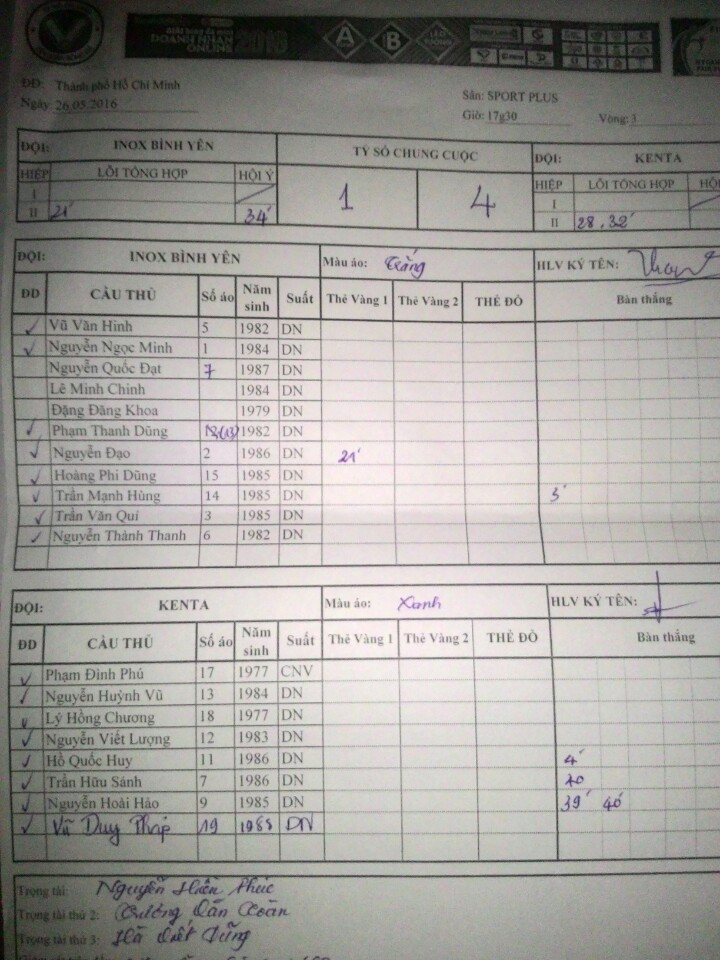 DOANH NHÂN
ONLINE 2016
A B
ĐĐ: Thành phố Hồ Chí Minh
Ngày: 26.05.2016
Sân: SPORT PLUS
Giờ: 17g30 Vòng: 3
ĐỘI: INOX BÌNH YÊN TỶ SỐ CHUNG CUỘC ĐỘI: KENTA
HIỆP LỖI TỔNG HỢP HỘI Ý 1 4 HIỆP LỖI TỔNG HỢP
I I
II 21' 34' II 28, 32'
ĐỘI: INOX BÌNH YÊN Màu áo: Trắng HLV KÝ TÊN:
ĐD CẦU THỦ Số áo Năm sinh Suất Thẻ Vàng 1 Thẻ Vàng 2 THẺ ĐỎ Bàn thắng
Vũ Văn Hinh 5 1982 DN
Nguyễn Ngọc Minh 1 1984 DN
Nguyễn Quốc Đạt 7 1987 DN
Lê Minh Chinh 1984 DN
Đặng Đăng Khoa 1979 DN
Phạm Thanh Dũng (13) 1982 DN
Nguyễn Đạo 2 1986 DN 21'
Hoàng Phi Dũng 15 1985 DN
Trần Mạnh Hùng 14 1985 DN 3'
Trần Văn Quí 3 1985 DN
Nguyễn Thành Thanh 6 1982 DN
ĐỘI: KENTA Màu áo: Xanh HLV KÝ TÊN:
ĐD CẦU THỦ Số áo Năm sinh Suất Thẻ Vàng 1 Thẻ Vàng 2 THẺ ĐỎ Bàn thắng
Phạm Đình Phú 17 1977 CNV
Nguyễn Huỳnh Vũ 13 1984 DN
Lý Hồng Chương 18 1977 DN
Nguyễn Viết Lượng 12 1983 DN
Hồ Quốc Huy 11 1986 DN 4'
Trần Hữu Sánh 7 1986 DN 20
Nguyễn Hoài Hảo 9 1985 DN 39' 40'
Vũ Duy Pháp 19 1985 DN
Trọng tài: Nguyễn Hiền Phúc
Trọng tài thứ 2:
Trọng tài thứ 3: Hà Viết Dũng